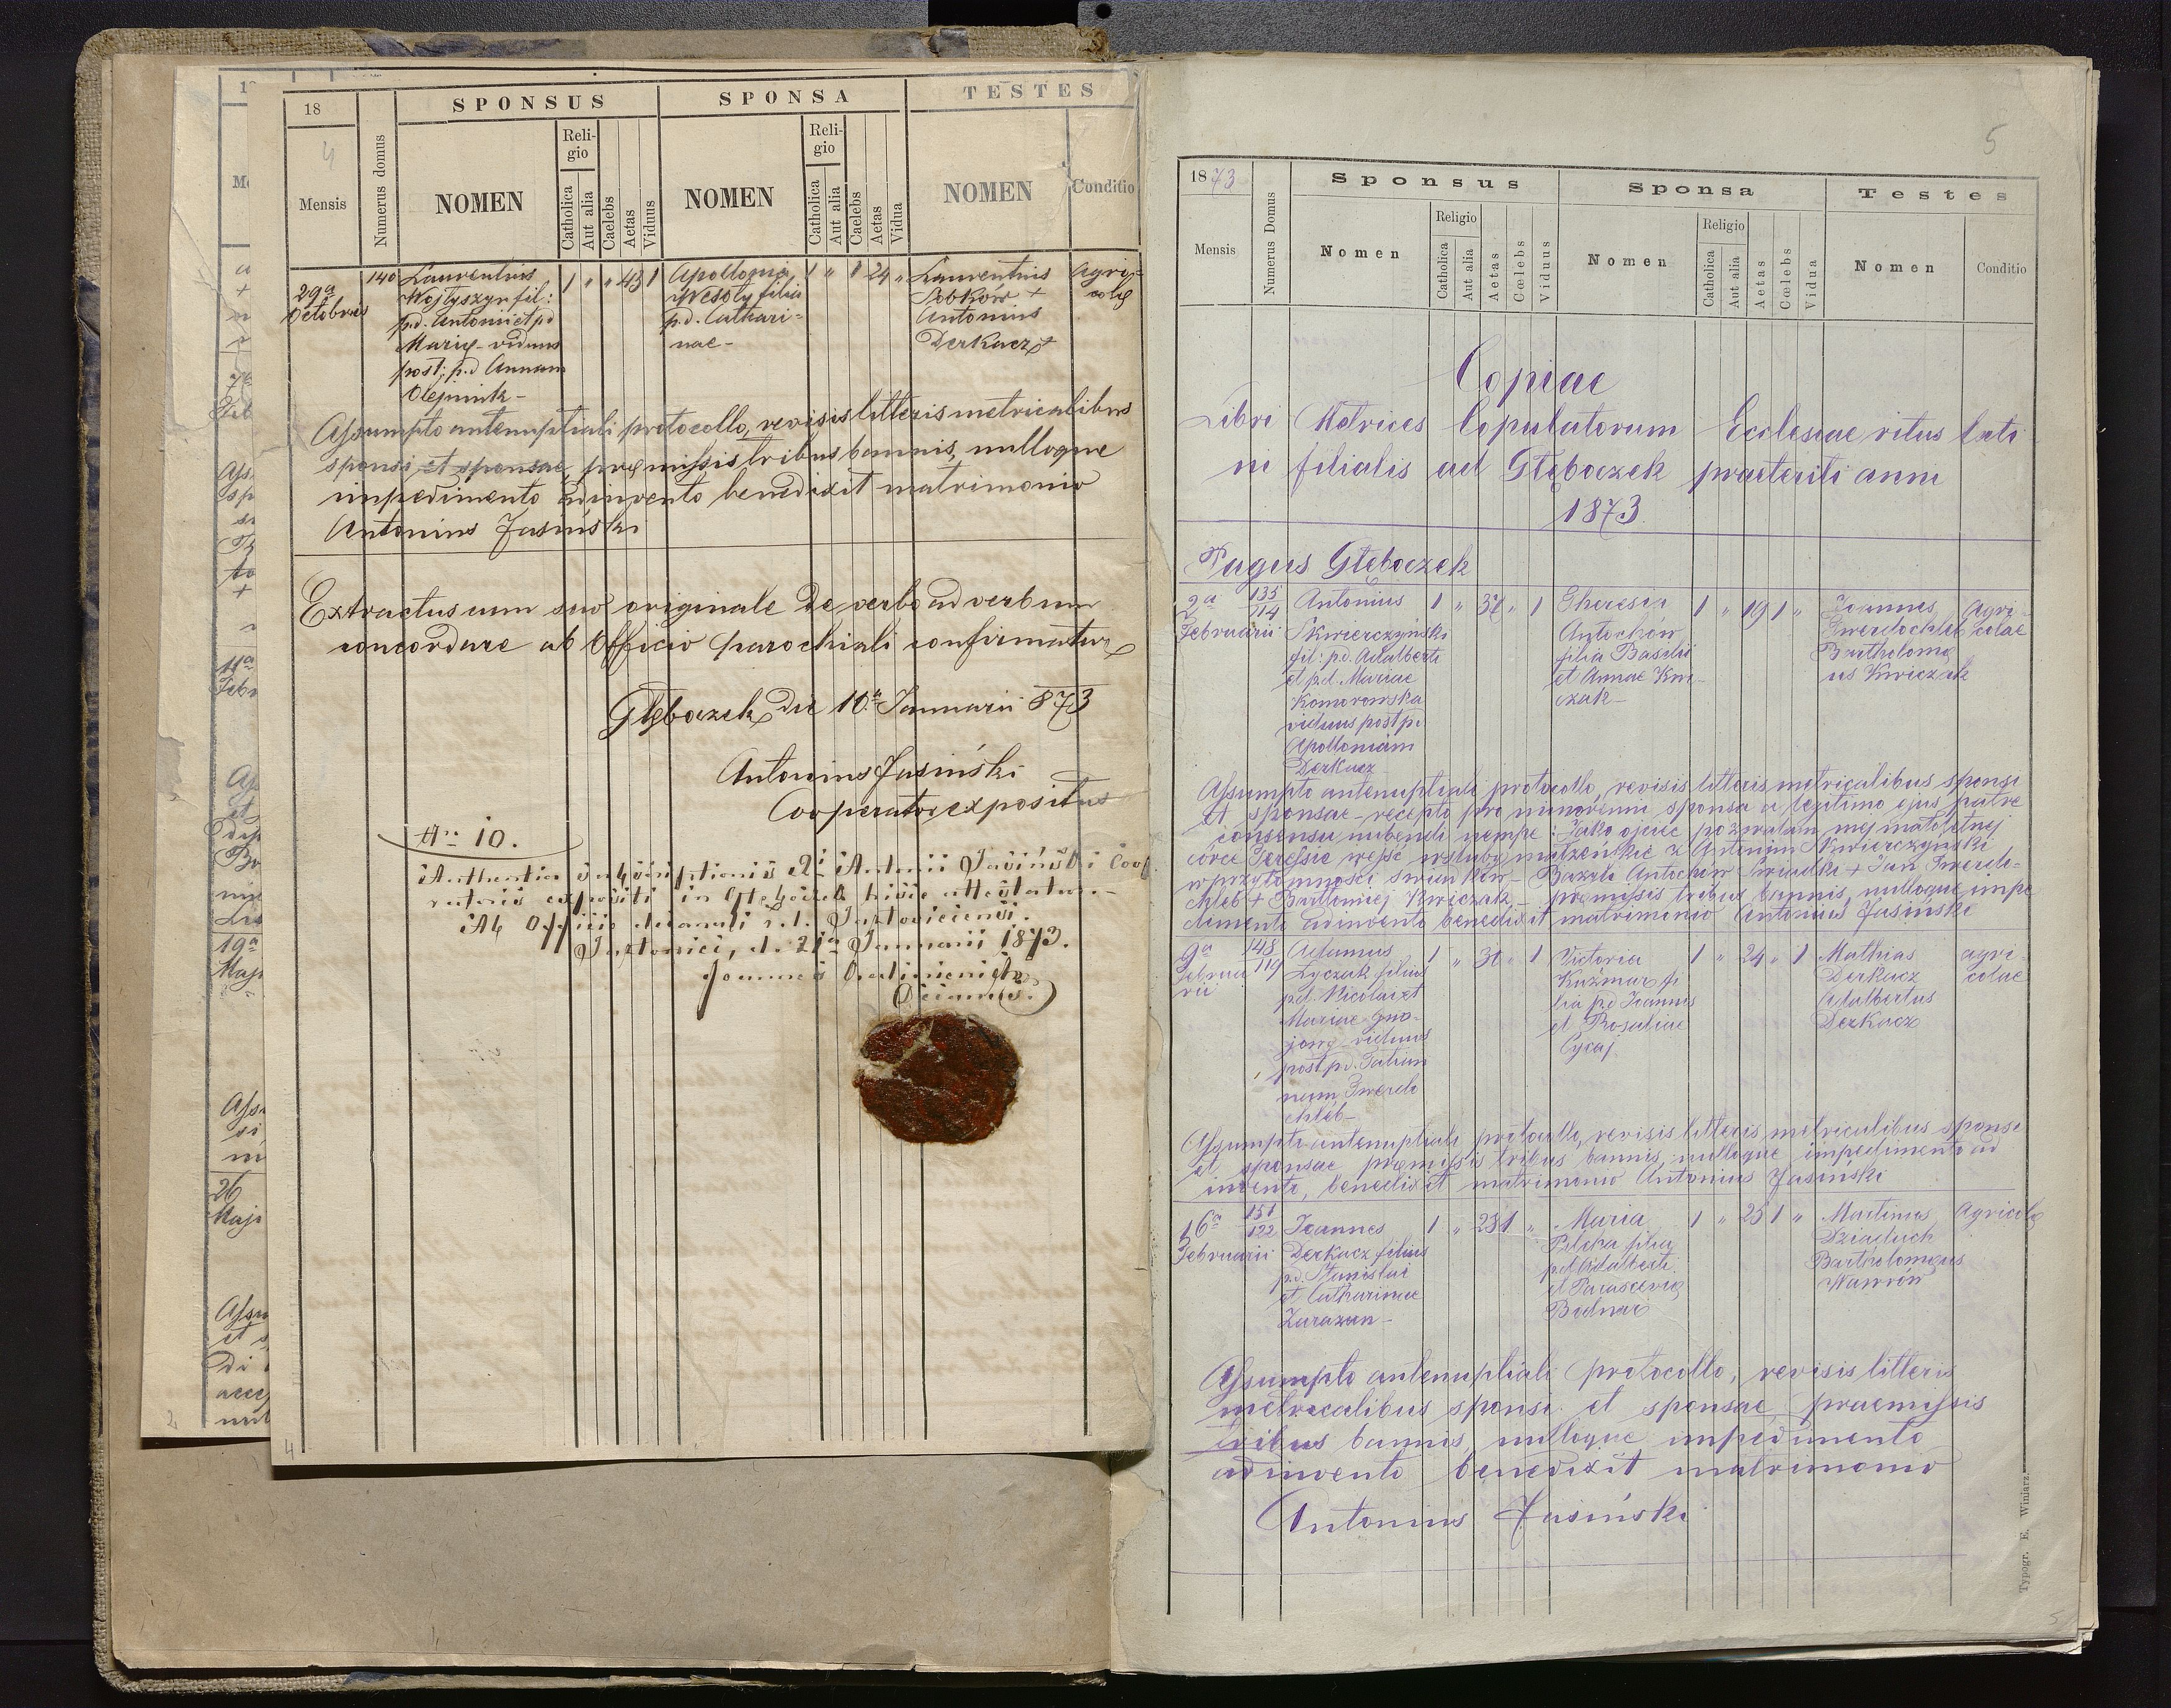 18
4
SPONSUS
SPONSA
TESTES
Mensis
Numerus domus
NOMEN
Religio
Catholica
Aut alia
Caelebs
Aetas
Viduus
NOMEN
Religio
Catholica
Aut alia
Caelebs
Aetas
Vidua
NOMEN
Conditio
29a Octobris
140
Laurentius
Wojtyszyn fil:
p.d. Antonii et pd
Marię viduus
post: p.d Annam
Olejnik-
1 " " 43 1
Apollonia
Wesoły filia
p.d. Cathari=
nae-
1 " 1 24 "
Laurentius
Sobków +
Antonius
Derkacz +
Agri=
colę
Assumpto antenuptiali protocollo, revisis litteris metricalibus
sponsi et sponsae, pręmissis tribus bannis, nulloque
impedimento adinvento benedixit matrimonio
Antonius Jasiński
Extractus cum suo originale de verbo ad verbum
concordare ab Officio parochiali confirmatur
Głęboczek die 10a Januarii 873
Antonius Jasiński
Cooperator expositus
Nr 10.
Authentia subscriptionis Antonii Jasiński Coop
ratoris expositi in Głęboczek hisce attestatur.-
Ab Officio decanali r.l.
d. 21a Januarii 1873.
Joannes
Decanus.
5
1873
Sponsus
Sponsa
Testes
Mensis
Numerus Domus
Nomen
Religio
Catholica
Aut alia
Aetas
Cœlebs
Viduus
Nomen
Religio
Catholica
Aut alia
Aetas
Cœlebs
Vidua
Nomen
Conditio
Copiae
Libri Metrices Copulatorum Ecclesiae ritus lati
ni filialis ad Głęboczek praeteriti anni
1873.
Pagus Głęboczek
2a Februarii
135
114
Antonius
Skwierczyński
fil: p.d. Adalberti
et p.d. Mariae
Komorowska
viduus post p.
Apolloniam
Derkacz
1 " " 1
Theresia
Antochów
filia Basilii
et Annae Kwi-
czak-
1 " 19 1 "
Joannes
Twerdochleb
Bartholomę
us Kwiczak
Agri-
colae
Assumpto antenuptiali protocollo, revisis litteris metricalibus sponsi
et sponsae - recepto pro minorenni sponsa a legitimo ejus patre
consensu nubendi nempe: Jako ojciec pozwalam mej małoletnej
córce Teressie wejść w śluby małżeńskie z Antonim Skwierczyński
w przytomności świadków- Bazyli Antochów Świadki + Jan Twerdo-
chleb + Bartłomiej Kwiczak - pręmissis tribus bannis, nulloque impe
dimento adinvento benedixit matrimonio Antonius Jasiński
9a Februa
rii
148
119
Adamus
Łyczak filius
p.d. Nicolai et
Mariae
viduus
post pd. Tatian
nam Twerdo
chleb-
1 " " 1
Victoria
Kuźmar fi
lia p.d Joannis
et Rosaliae
Cycaj
1 " 24 " 1
Mathias
Derkacz
Adalbertus
Derkacz
agri-
colae
Assumpto antenuptiali protocollo, revisis litteris metricalibus sponsi
et sponsae pręmissis tribus bannis, nulloque impedimento ad
invento, benedixit matrimonio Antonius Jasiński
16a
Februarii
151
122
Joannes
Derkacz filius
p.d. Stanislai
et Catharinae
Zarazun-
1 " 23 1 "
Maria
filia
p.d Adalberti
et Parascevię
Bednar
1 " 23 1 "
Martinus
Dziaduch
Bartholomęus
Wawrów
Agricolę
Assumpto antenuptiali protocollo, revisis litteris
metricalibus sponsi et sponsae, praemissis
tribus bannis, nulloque impedimento
adinvento benedixit matrimonio
Antonius Jasiński
Typogr. E. Winiarz.